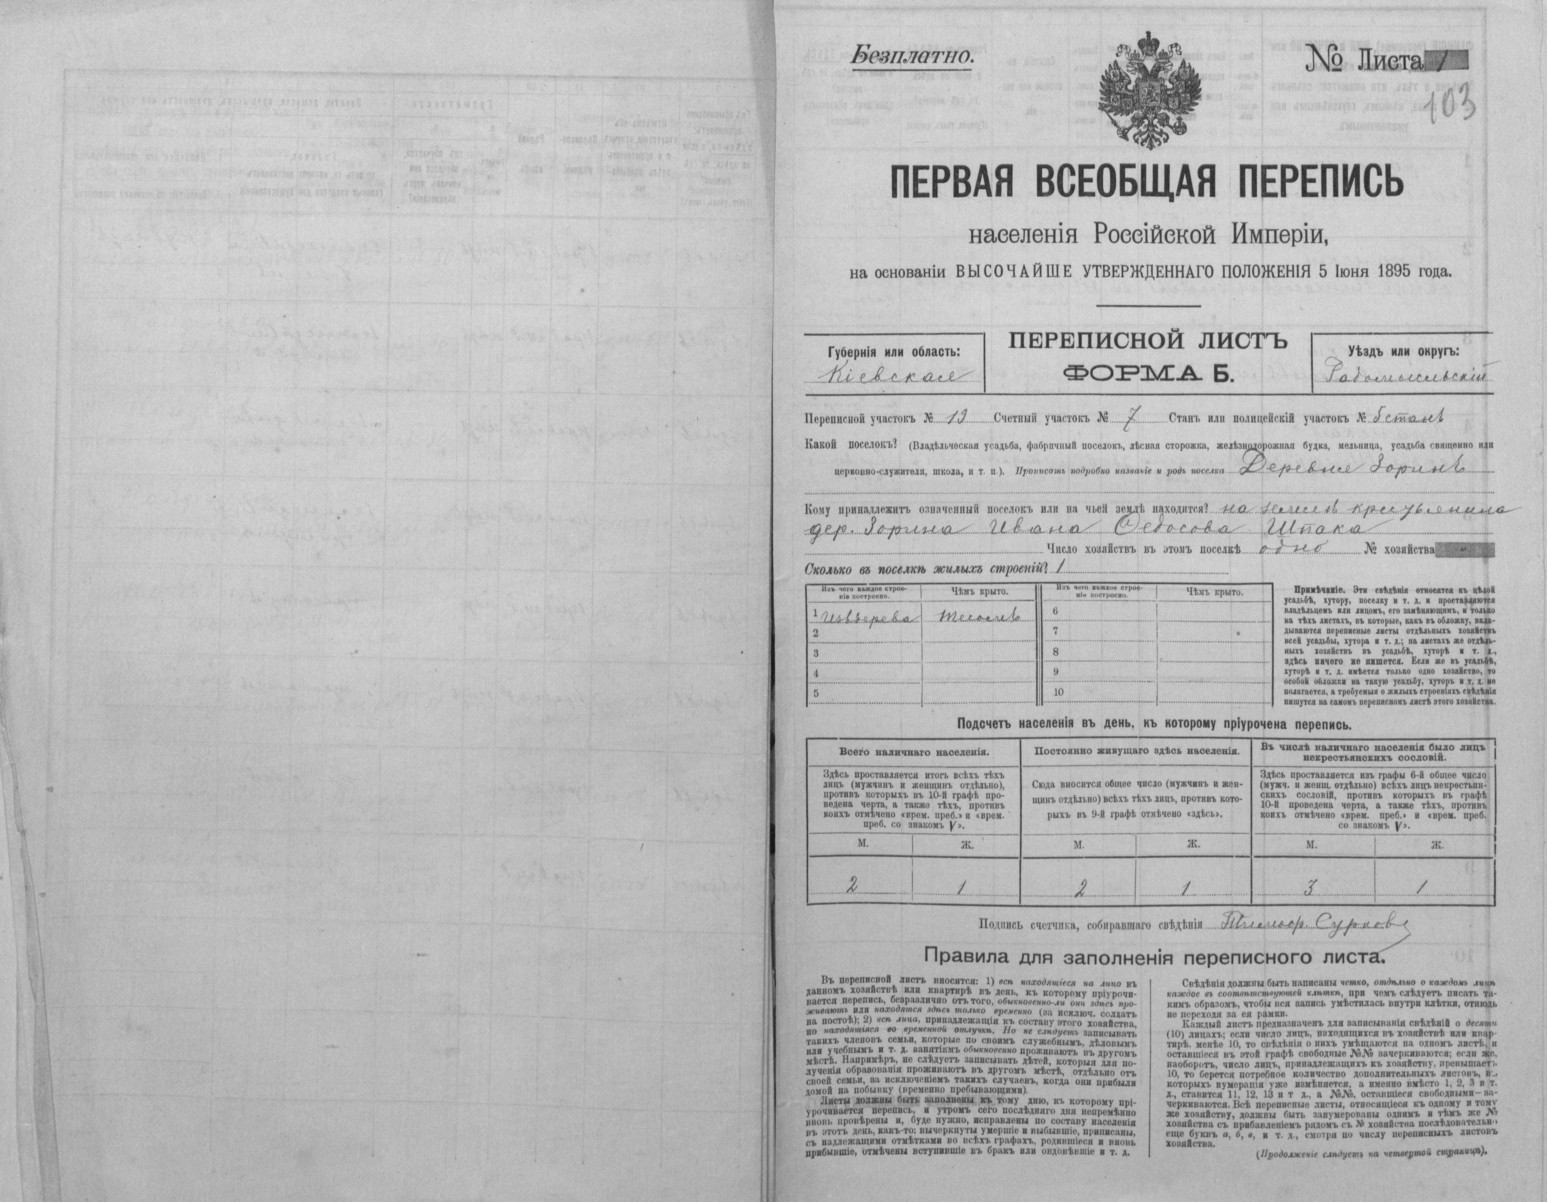 Безплатно.
№ Листа 1
103
ПЕРВАЯ ВСЕОБЩАЯ ПЕРЕПИСЬ
населенія Россійской Имперіи,
на основаніи ВЫСОЧАЙШЕ УТВЕРЖДЕННАГО ПОЛОЖЕНІЯ 5 Іюня 1895 года.
Губернія или область:
Кіевская
ПЕРЕПИСНОЙ ЛИСТЪ
ФОРМА Б.
Уѣздъ или округъ:
Радомысльскій
Переписной участокъ № 12 Счетный участокъ № 7 Станъ или полицейскій участокъ № 5 станъ
Какой поселокъ? (Владѣльческая усадьба, фабричный поселокъ, лѣсная сторожка, желѣзнодорожная будка, мельница, усадьба священно или
церковно-служителя, школа, и т. п.). Прописать подробно названіе и родъ поселка Деревня Зоринъ
Кому принадлежитъ означенный поселокъ или на чьей землѣ находится? на землѣ крестьянина
дер. Зорина Ивана Федосова Шпака
Число хозяйствъ въ этомъ поселкѣ одно № хозяйства
Сколько въ поселкѣ жилыхъ строеній? 1
Изъ чего каждое строе-
ніе построено.
Чѣмъ крыто.
Изъ чего каждое строе-
ніе построено.
Чѣмъ крыто.
1 Изъ дерева
6
2
7
3
8
4
9
5
10
Примѣчаніе. Эти свѣдѣнія относятся къ цѣлой
усадьбѣ, хутору, поселку и т. д. и проставляются
владѣльцемъ или лицомъ, его замѣняющимъ, и только
на тѣхъ листахъ, въ которые, какъ въ обложку, вкла-
дываются переписные листы отдѣльныхъ хозяйствъ
всей усадьбы, хутора и т. д.; на листахъ же отдѣль-
ныхъ хозяйствъ въ усадьбѣ, хуторѣ и т. д.,
здѣсь ничего не пишется. Если же въ усадьбѣ,
хуторѣ и т. д. имѣется только одно хозяйство, то
особой обложки на такую усадьбу, хуторъ и т. д. не
полагается, а требуемыя о жилыхъ строеніяхъ свѣдѣнія
пишутся на самомъ переписномъ листѣ этого хозяйства.
Подсчетъ населенія въ день, къ которому пріурочена перепись.
Всего наличнаго населенія.
Здѣсь проставляется итогъ всѣхъ тѣхъ
лицъ (мужчинъ и женщинъ отдѣльно),
противъ которыхъ въ 10-й графѣ про-
ведена черта, а также тѣхъ, противъ
коихъ отмѣчено «врем. преб.» и «врем.
преб. со знакомъ V».
Постоянно живущаго здѣсь населенія.
Сюда вносится общее число (мужчинъ и жен-
щинъ отдѣльно) всѣхъ тѣхъ лицъ, противъ кото-
рыхъ въ 9-й графѣ отмѣчено «здѣсь».
Въ числѣ наличнаго населенія было лицъ
некрестьянскихъ сословій.
Здѣсь проставляется изъ графы 6-й общее число
(мужч. и женщ. отдѣльно) всѣхъ лицъ некрестьян-
скихъ сословій, противъ которыхъ въ графѣ
10-й проведена черта, а также тѣхъ, противъ
коихъ отмѣчено «врем. преб.» и «врем. преб.
со знакомъ V».
М. Ж. М. Ж. М. Ж.
2 1 2 1 3 1
Подпись счетчика, собиравшаго свѣдѣнія
Правила для заполненія переписного листа.
Въ переписной листъ вносятся: 1) всѣ находящіеся на лицо въ
данномъ хозяйствѣ или квартирѣ въ день, къ которому пріурочи-
вается перепись, безразлично отъ того, обыкновенно-ли они здѣсь про-
живаютъ или находятся здѣсь только временно (за исключ. солдатъ
на постоѣ); 2) всѣ лица, принадлежащія къ составу этого хозяйства,
но находящіяся во временной отлучкѣ. Но не слѣдуетъ записывать
такихъ членовъ семьи, которые по своимъ служебнымъ, дѣловымъ
или учебнымъ и т. д. занятіямъ обыкновенно проживаютъ въ другомъ
мѣстѣ. Напримѣръ, не слѣдуетъ записывать дѣтей, которыя для по-
лученія образованія проживаютъ въ другомъ мѣстѣ, отдѣльно отъ
своей семьи, за исключеніемъ такихъ случаевъ, когда они прибыли
домой на побывку (временно пребывающими).
Листы должны быть заполнены къ тому дню, къ которому прі-
урочивается перепись, и утромъ сего послѣдняго дня непремѣнно
вновь провѣрены и, буде нужно, исправлены по составу населенія
въ этотъ день, какъ-то: вычеркнуты умершіе и выбывшіе, приписаны,
съ надлежащими отмѣтками во всѣхъ графахъ, родившіеся и вновь
прибывшіе, отмѣчены вступившіе въ бракъ или овдовѣвшіе и т. д.
Свѣдѣнія должны быть написаны четко, отдѣльно о каждомъ лицѣ
каждое въ соотвѣтствующей клѣткѣ, при чемъ слѣдуетъ писать та-
кимъ образомъ, чтобы вся запись умѣстилась внутри клѣтки, отнюдь
не переходя за ея рамки.
Каждый листъ предназначенъ для записыванія свѣдѣній о десяти
(10) лицахъ; если число лицъ, находящихся въ хозяйствѣ или квар-
тирѣ, менѣе 10, то свѣдѣнія о нихъ умѣщаются на одномъ листѣ, и
оставшіеся въ этой графѣ свободные №№ зачеркиваются; если же,
наоборотъ, число лицъ, принадлежащихъ къ хозяйству, превышаетъ
10, то берется потребное количество дополнительныхъ листовъ, въ
которыхъ нумерація уже измѣняется, а именно вмѣсто 1, 2, 3 и т.
д., ставится 11, 12, 13 и т. д., а №№, оставшіеся свободными—за-
черкиваются. Всѣ переписные листы, относящіеся къ одному и тому
же хозяйству, должны быть занумерованы однимъ и тѣмъ же №
хозяйства съ прибавленіемъ рядомъ съ № хозяйства послѣдовательно
еще буквъ а, б, в, и т. д., смотря по числу переписныхъ листовъ
хозяйства.
(Продолженіе слѣдуетъ на четвертой страницѣ).